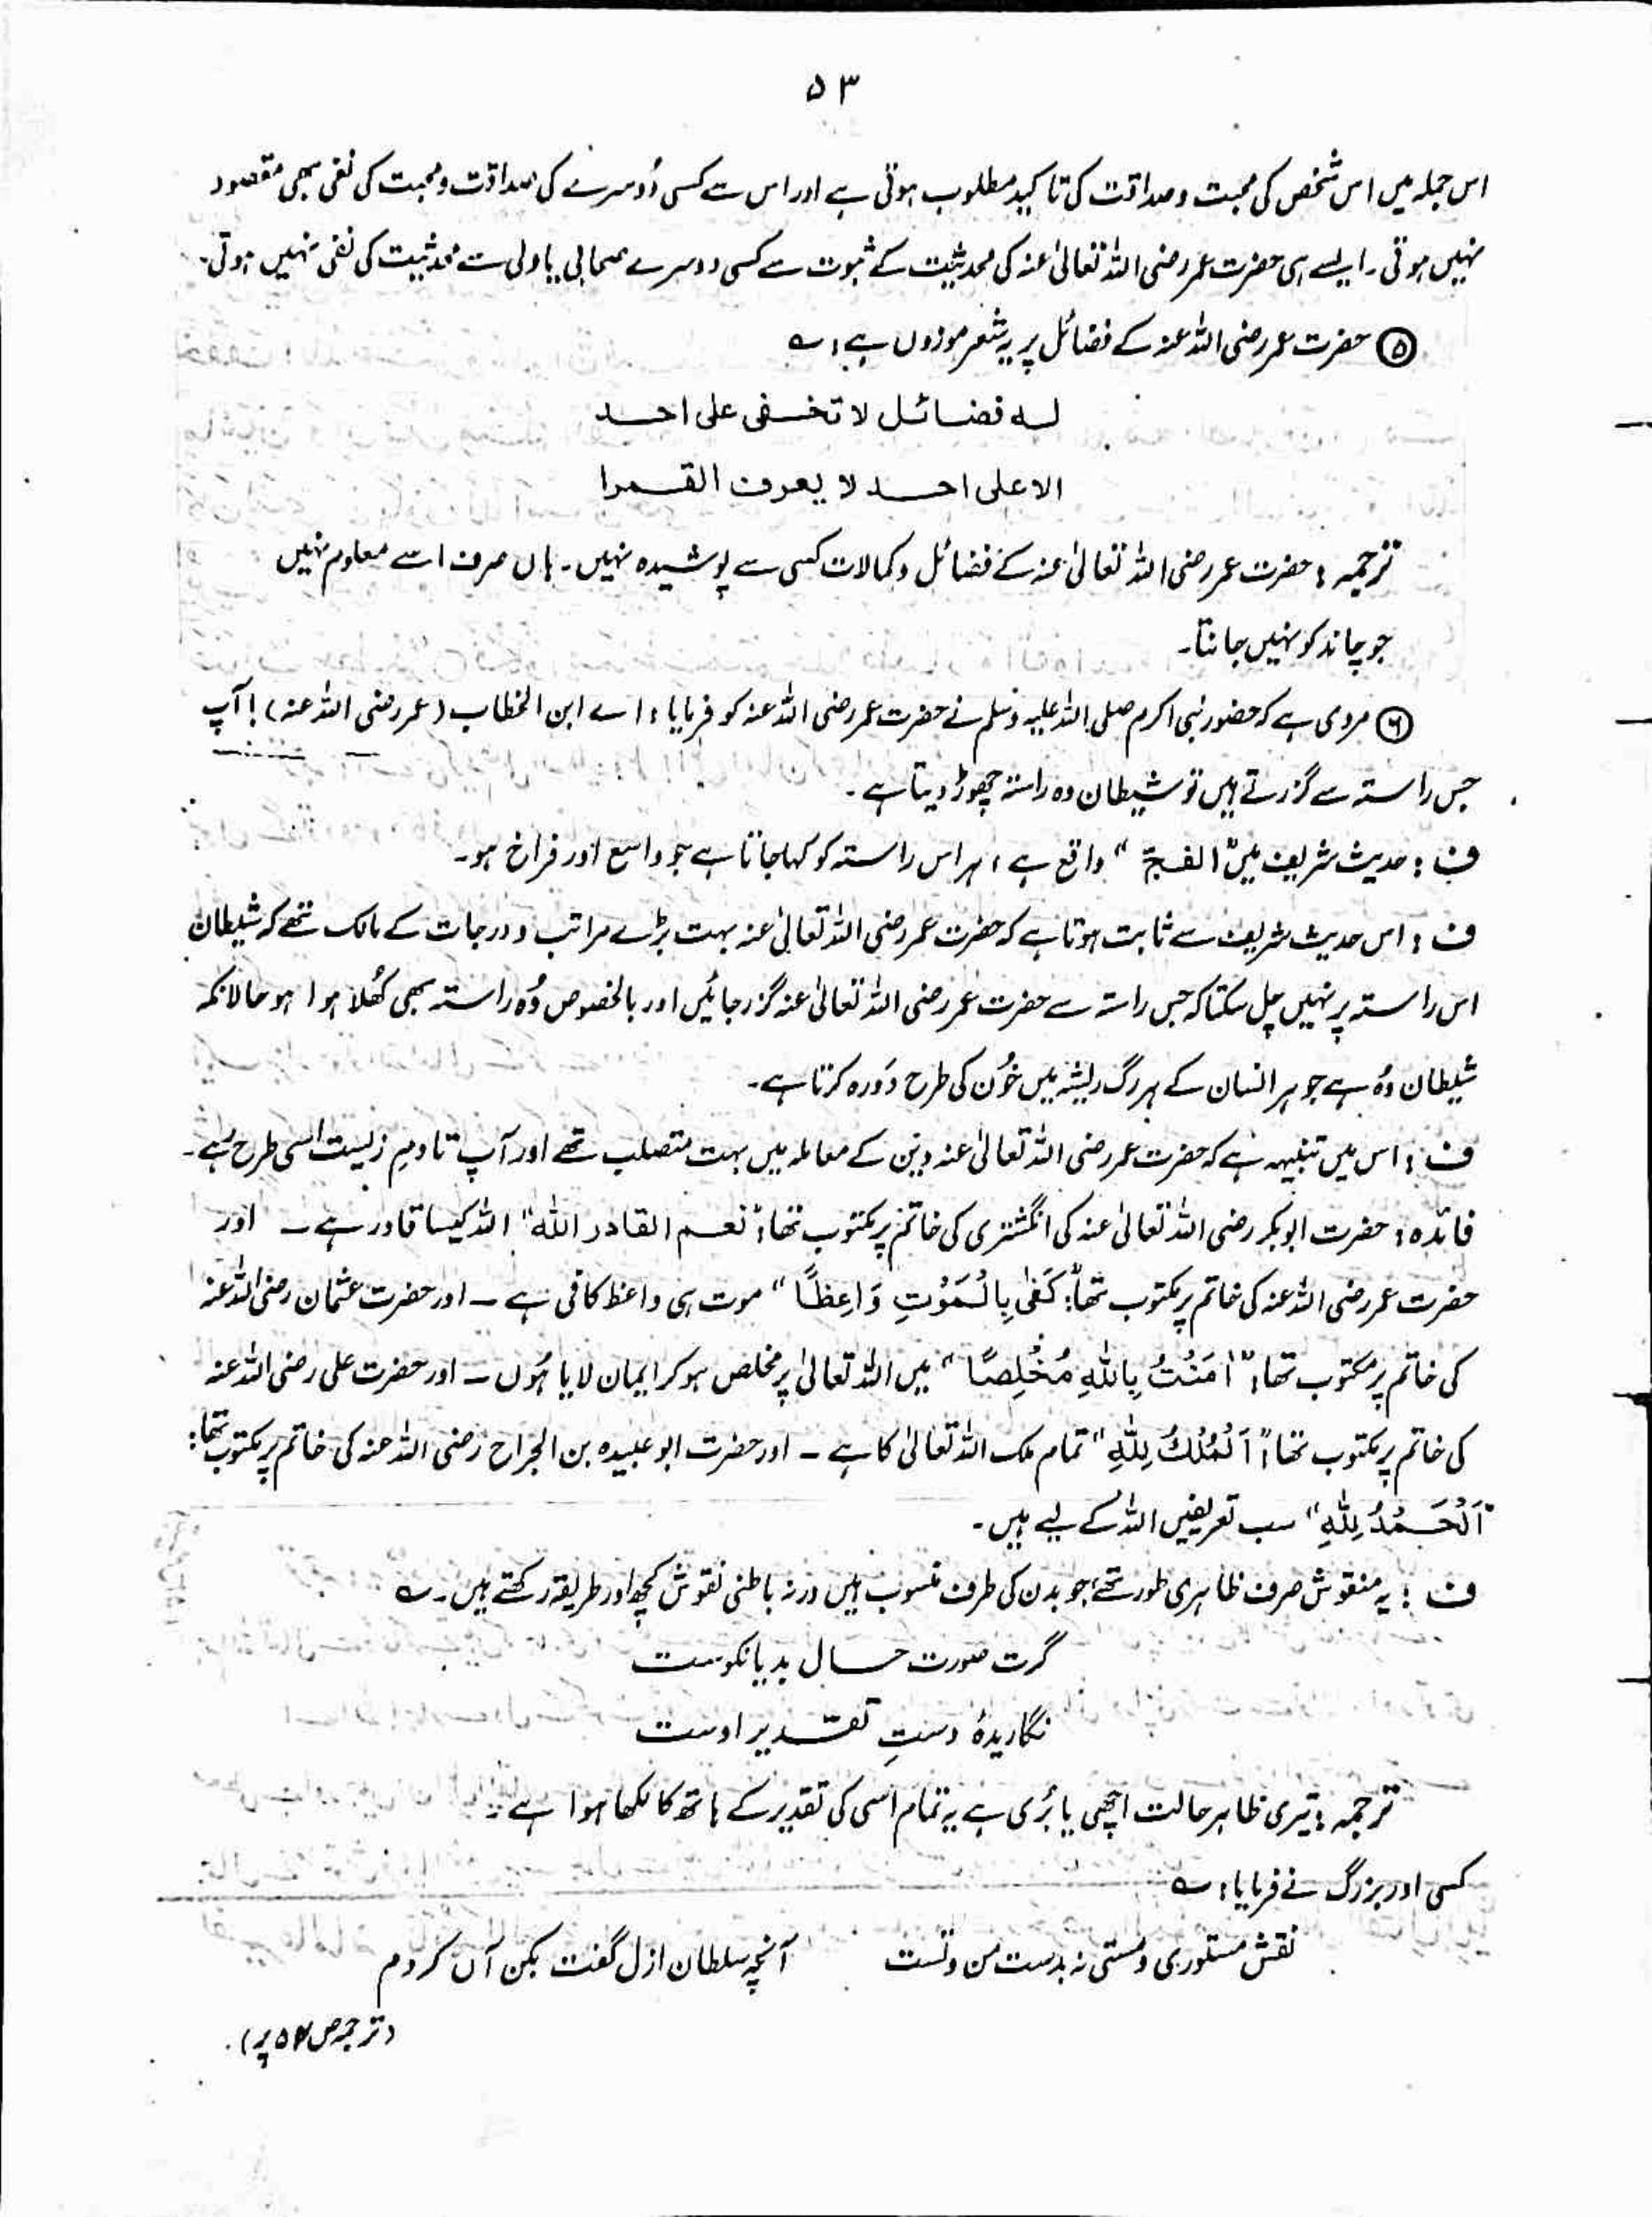 ۵۳
اس جملہ میں اس شخص کی محبت و صداقت کی تاکید مطلوب ہوتی ہے اور اس سے کسی دُوسرے کی صداقت و محبت کی نفی بھی مقصود
نہیں ہوتی۔ ایسے ہی حضرت عمر رضی اللہ تعالیٰ عنہ کی محدثیت کے ثبوت سے کسی دوسرے صحابی یا ولی سے محدثیت کی نفی نہیں ہوتی۔
⑤ حضرت عمر رضی اللہ عنہ کے فضائل پر یہ شعر موزوں ہے: ؎
لہ فضائل لا تخفی علی احد
الا علی احد لا یعرف القمرا
ترجمہ: حضرت عمر رضی اللہ تعالیٰ عنہ کے فضائل و کمالات کسی سے پوشیدہ نہیں۔ ہاں صرف اسے معلوم نہیں
جو چاند کو نہیں جانتا۔
⑥ مروی ہے کہ حضور نبی اکرم صلی اللہ علیہ وسلم نے حضرت عمر رضی اللہ عنہ کو فرمایا: اے ابن الخطاب (عمر رضی اللہ عنہ)! آپ
جس راستہ سے گزرتے ہیں تو شیطان وہ راستہ چھوڑ دیتا ہے۔
ف: حدیث شریف میں "الفجّ" واقع ہے، ہر اس راستہ کو کہا جاتا ہے جو واسع اور فراخ ہو۔
ف: اس حدیث شریف سے ثابت ہوتا ہے کہ حضرت عمر رضی اللہ تعالیٰ عنہ بہت بڑے مراتب و درجات کے مالک تھے کہ شیطان
اس راستہ پر نہیں چل سکتا کہ جس راستہ سے حضرت عمر رضی اللہ تعالیٰ عنہ گزر جائیں اور بالخصوص وُہ راستہ بھی کُھلا ہوا ہو حالانکہ
شیطان وُہ ہے جو ہر انسان کے ہر رگ ریشہ میں خُون کی طرح دَورہ کرتا ہے۔
ف: اس میں تنبیہہ ہے کہ حضرت عمر رضی اللہ تعالیٰ عنہ دین کے معاملہ میں بہت متصلب تھے اور آپ تا دمِ زیست اسی طرح رہے۔
فائدہ: حضرت ابوبکر رضی اللہ تعالیٰ عنہ کی انگشتری کی خاتم پر مکتوب تھا: "نعم القادر اللہ" اللہ کیسا قادر ہے ـ اور
حضرت عمر رضی اللہ عنہ کی خاتم پر مکتوب تھا: "کَفٰی بِالْمَوْتِ وَاعِظًا" موت ہی واعظ کافی ہے ـ اور حضرت عثمان رضی اللہ عنہ
کی خاتم پر مکتوب تھا: "اٰمَنْتُ بِاللّٰہِ مُخْلِصًا" میں اللہ تعالیٰ پر مخلص ہو کر ایمان لایا ہُوں ـ اور حضرت علی رضی اللہ عنہ
کی خاتم پر مکتوب تھا: "اَلْمُلْکُ لِلّٰہِ" تمام ملک اللہ تعالیٰ کا ہے ـ اور حضرت ابو عبیدہ بن الجراح رضی اللہ عنہ کی خاتم پر مکتوب تھا:
"اَلْحَمْدُ لِلّٰہِ" سب تعریفیں اللہ کے لیے ہیں۔
ف: یہ منقوش صرف ظاہری طور تھے، جو بدن کی طرف منسوب ہیں ورنہ باطنی نقوش کچھ اور طریقہ رکھتے ہیں۔ ؎
گرت صورت حال بد یا نکوست
نگاریدۂ دستِ تقدیر اوست
ترجمہ: تیری ظاہر حالت اچھی یا بُری ہے یہ تمام اسی کی تقدیر کے ہاتھ کا لکھا ہوا ہے۔
کسی اور بزرگ نے فرمایا: ؎
نقش مستوری و مستی نہ بدست من و تست آنچہ سلطان ازل گفت بکن آں کردم
(ترجمہ ص ۵۴ پر)